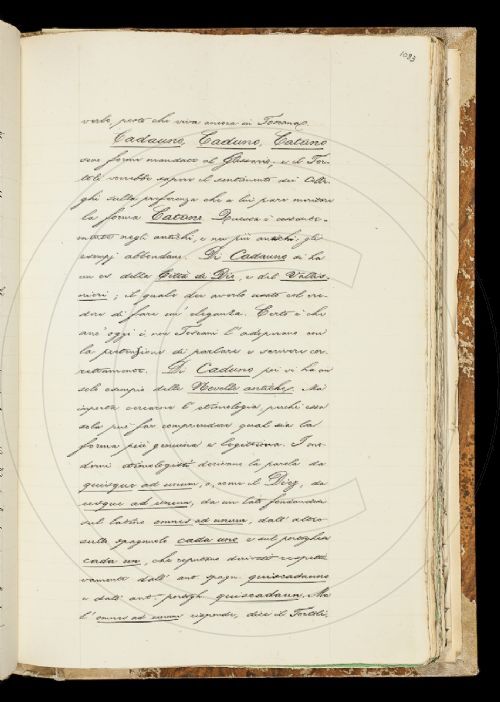 1093
verbo, pesto che viva ancora in Toscana.
Cadauno, Caduno, Catuno
sone forme mandate al Glossario; e il Tor-
toli vorrebbe sapere il sentimento dei Colle-
ghi sulla preferenza che a lui pare meritare
la forma Catuno. Questa è costante-
mente negli antichi, e nei più antichi; gli
esempj abbondano. Di Cadauno si ha
un es. della Città di Dio, e del Vallis-
nieri; il quale dee averlo usato col cre-
dere di fare un'eleganza. Certo è che
anc'oggi i non Toscani l'adoperano con
la pretensione di parlare e scrivere cor-
rettamente. Di Caduno poi si ha un
solo esempio delle Novelle antiche. Ma
importa cercarne l'etimologia, perché essa
sola può far comprendere qual sia la
forma più genuina e legittima. I mo-
derni etimologisti derivano la parola da
quisque ad unum, o, come il Diez, da
usque ad unum, da un lato fondandosi
sul latino omnis ad unum, dall'altro
sullo spagnuolo cada uno e sul portoghese
cada un, che reputano derivati rispetti-
vamente dall'ant. spagn. quiscadauno
e dall'ant. portogh. quiscadaun. Ma
l'omnis ad unum risponde, dice il Tortoli,